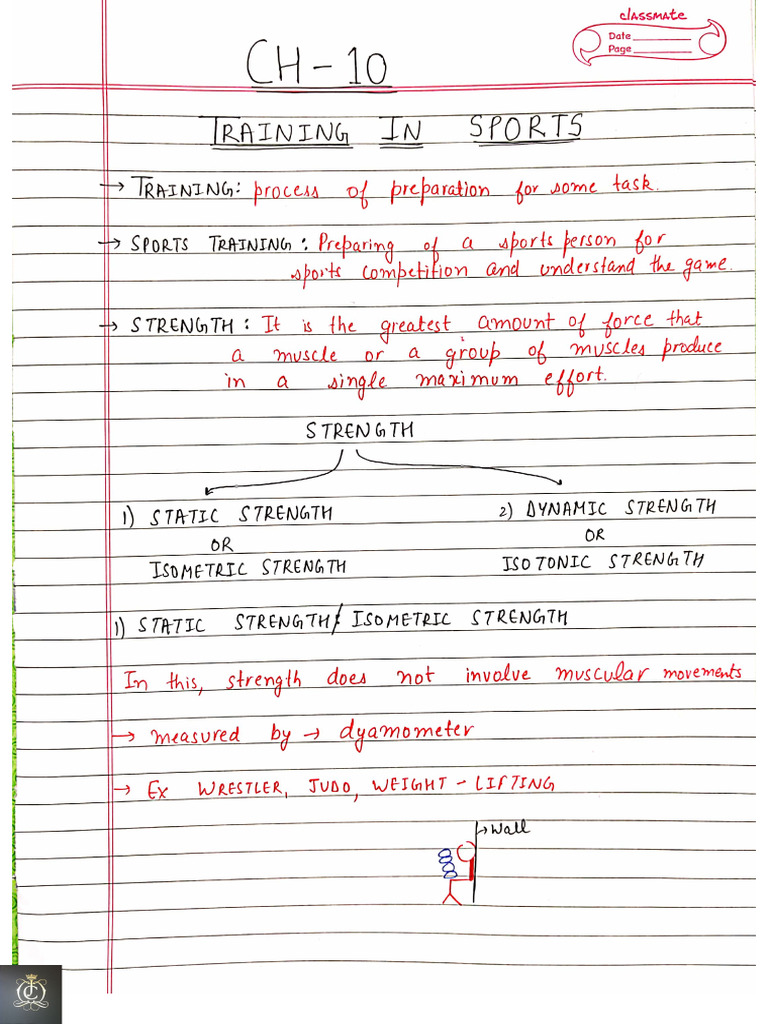 classmate
Date
Page
CH-10
TRAINING IN SPORTS
→ TRAINING: process of preparation for some task.
→ SPORTS TRAINING: Preparing of a sports person for
sports competition and understand the game.
→ STRENGTH: It is the greatest amount of force that
a muscle or a group of muscles produce
in a single maximum effort.
STRENGTH
1) STATIC STRENGTH 2) DYNAMIC STRENGTH
OR OR
ISOMETRIC STRENGTH ISOTONIC STRENGTH
1) STATIC STRENGTH/ ISOMETRIC STRENGTH
In this, strength does not involve muscular movements
→ measured by → dyamometer
→ Ex WRESTLER, JUDO, WEIGHT-LIFTING
→ Wall